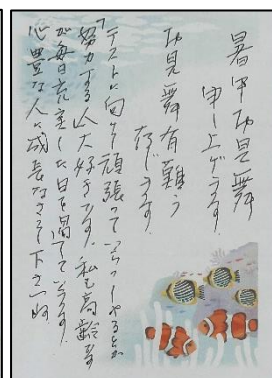 暑中お見舞
申し上げます。
お見舞有難う
存じます。
「テストに向け頑張っていらっしゃるとか
努力する人大好きです。私も高齢です
が毎日充実した日を過ごしてゐます。
心豊な人に成長なさって下さいね